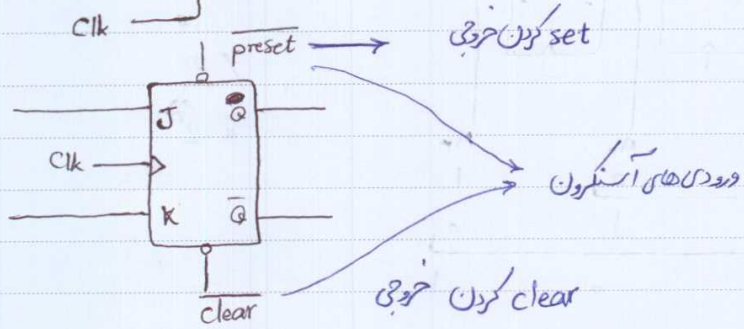 Clk
preset
set کردن خروجی
J
Q
Clk
ورودی‌های آسنکرون
K
Q̅
clear کردن خروجی
clear